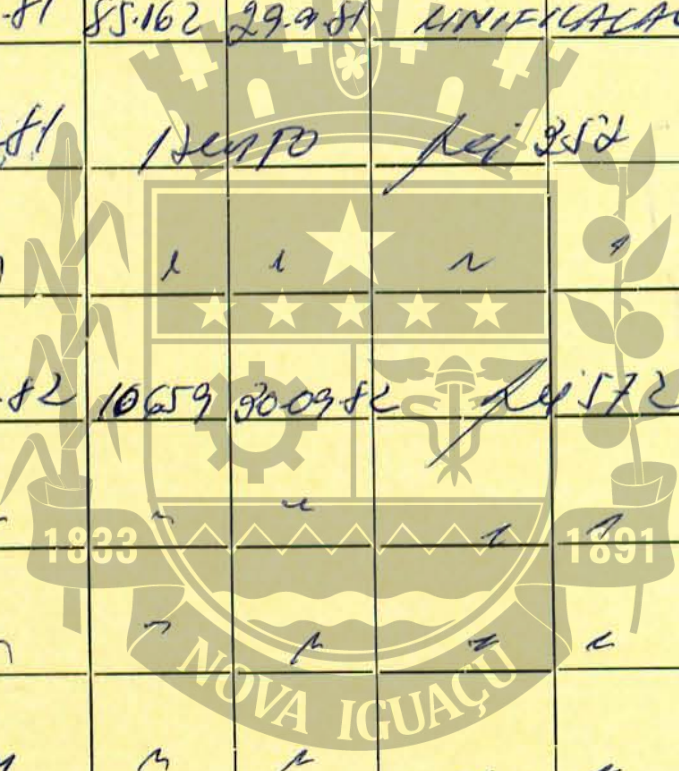 -81 85.162 29.9.81 UNIFICAÇÃO
.81 Isento Lei 352
-82 10659 30.09.82 Lei 572
1833 1891
NOVA IGUAÇU